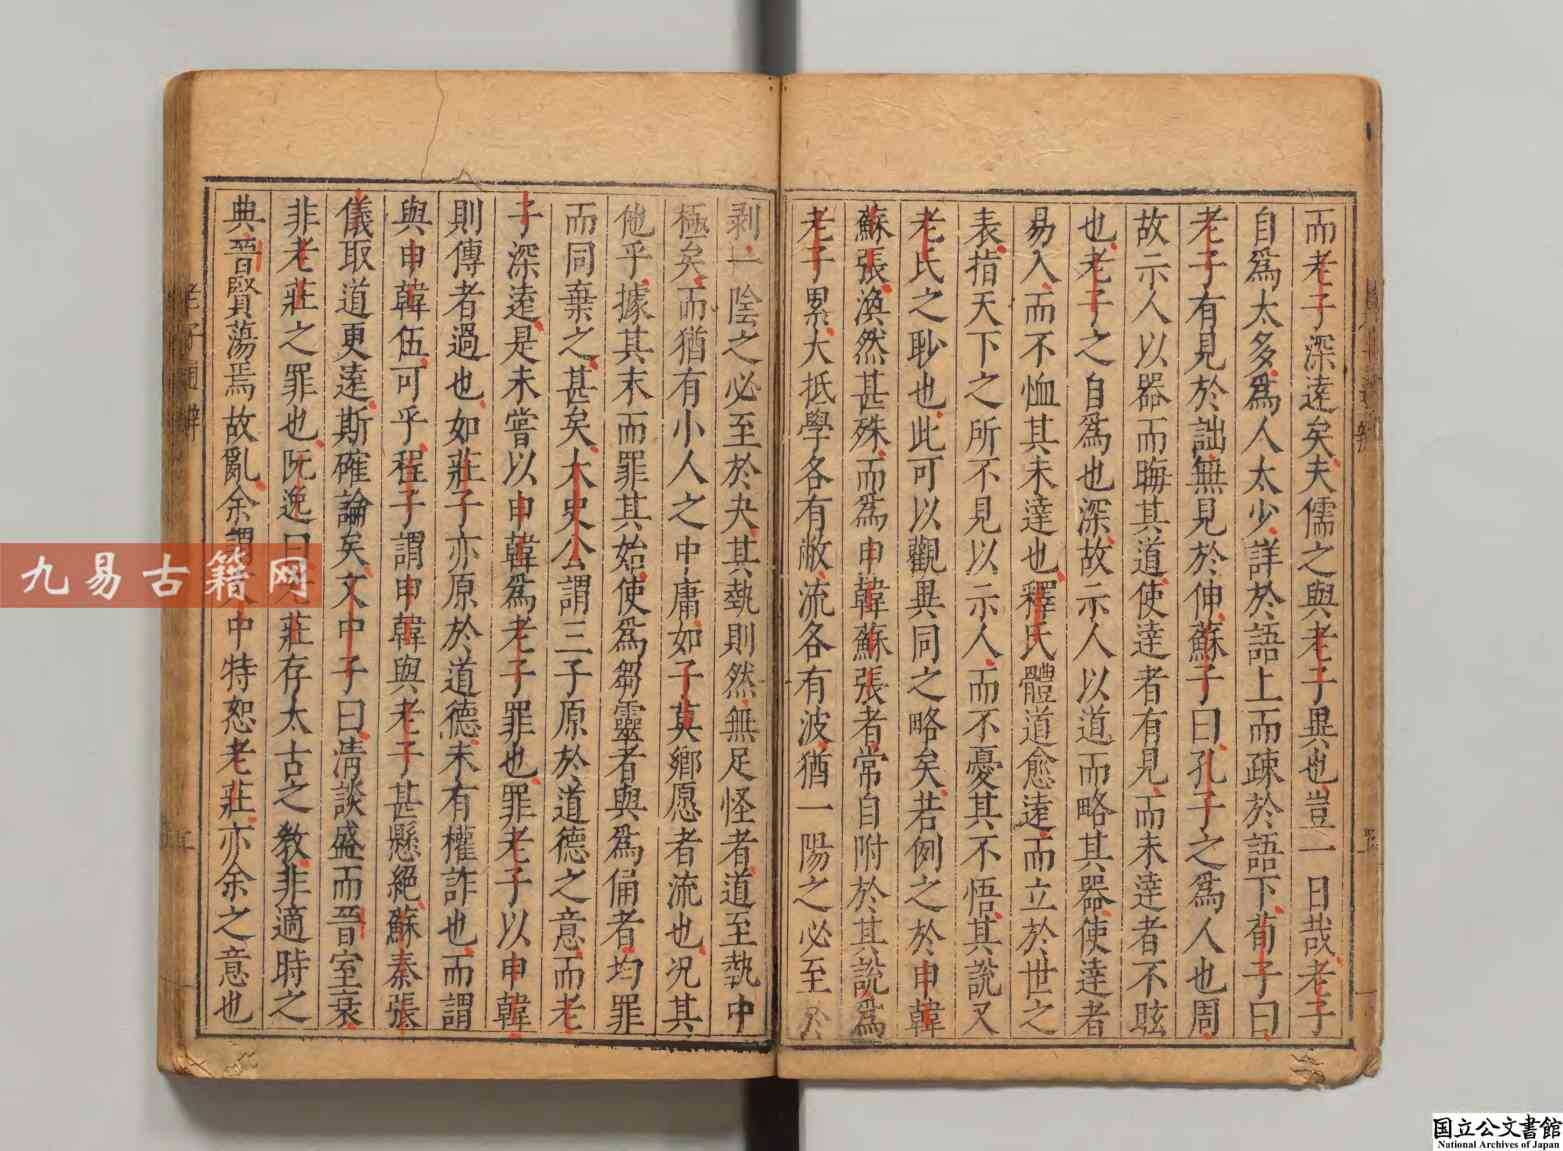 而老子深達矣夫儒之與老子異也豈一日哉老子
自爲太多爲人太少詳於語上而疎於語下荀子曰
老子有見於詘無見於伸蘇子曰孔子之爲人也周
故示人以器而晦其道使達者有見而未達者不眩
也老子之自爲也深故示人以道而略其器使達者
易入而不恤其未達也釋氏體道愈達而立於世之
表指天下之所不見以示人而不憂其不悟其說又
老氏之耽也此可以觀異同之略矣若例之於申韓
蘇張渙然甚殊而爲申韓蘇張者常自附於其說爲
老子累大抵學各有敝流各有波猶一陽之必至於
剥一陰之必至於夬其執則然無足怪者道至執中
極矣而猶有小人之中庸如子莫鄉愿者流也况其
他乎據其末而罪其始使爲芻靈者與爲俑者均罪
而同棄之甚矣太史公謂三子原於道德之意而老
子深遠是未嘗以申韓爲老子罪也罪老子以申韓
則傳者過也如莊子亦原於道德未有權詐也而謂
與申韓伍可乎程子謂申韓與老子甚懸絕蘇秦張
儀取道更遠斯確論矣文中子曰清談盛而晉室衰
非老莊之罪也阮逸曰老莊存太古之教非適時之
典晉賢蕩焉故亂余謂文中特恕老莊亦余之意也
九易古籍网
国立公文書館
National Archives of Japan